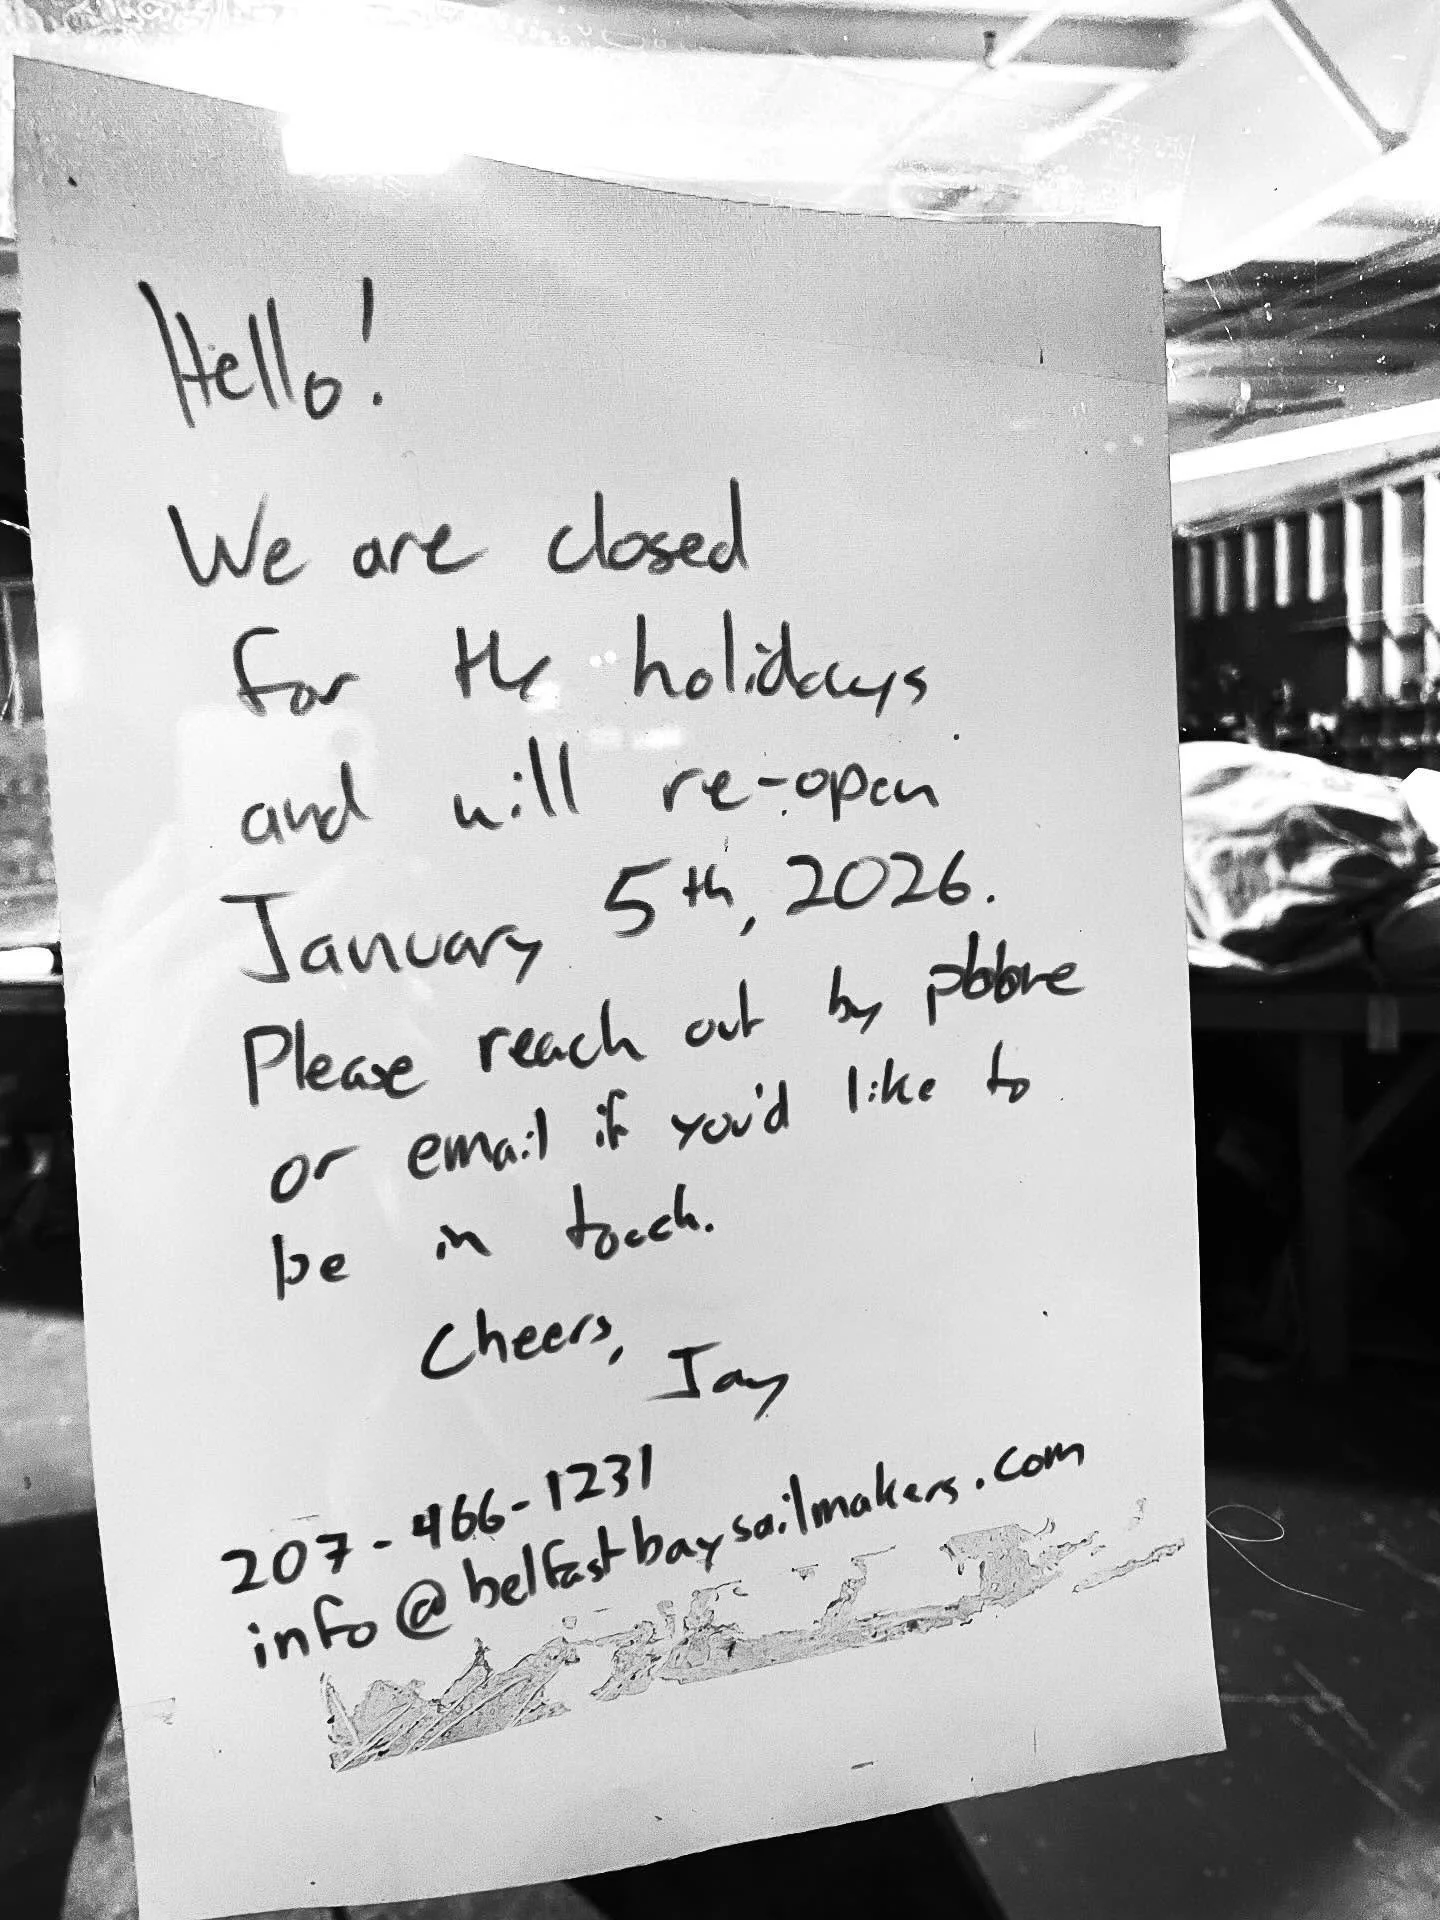 Hello!
We are closed
for the holidays
and will re-open
January 5th, 2026.
Please reach out by phone
or email if you'd like to
be in touch.
Cheers,
Jay
207-466-1231
info@belfastbaysailmakers.com